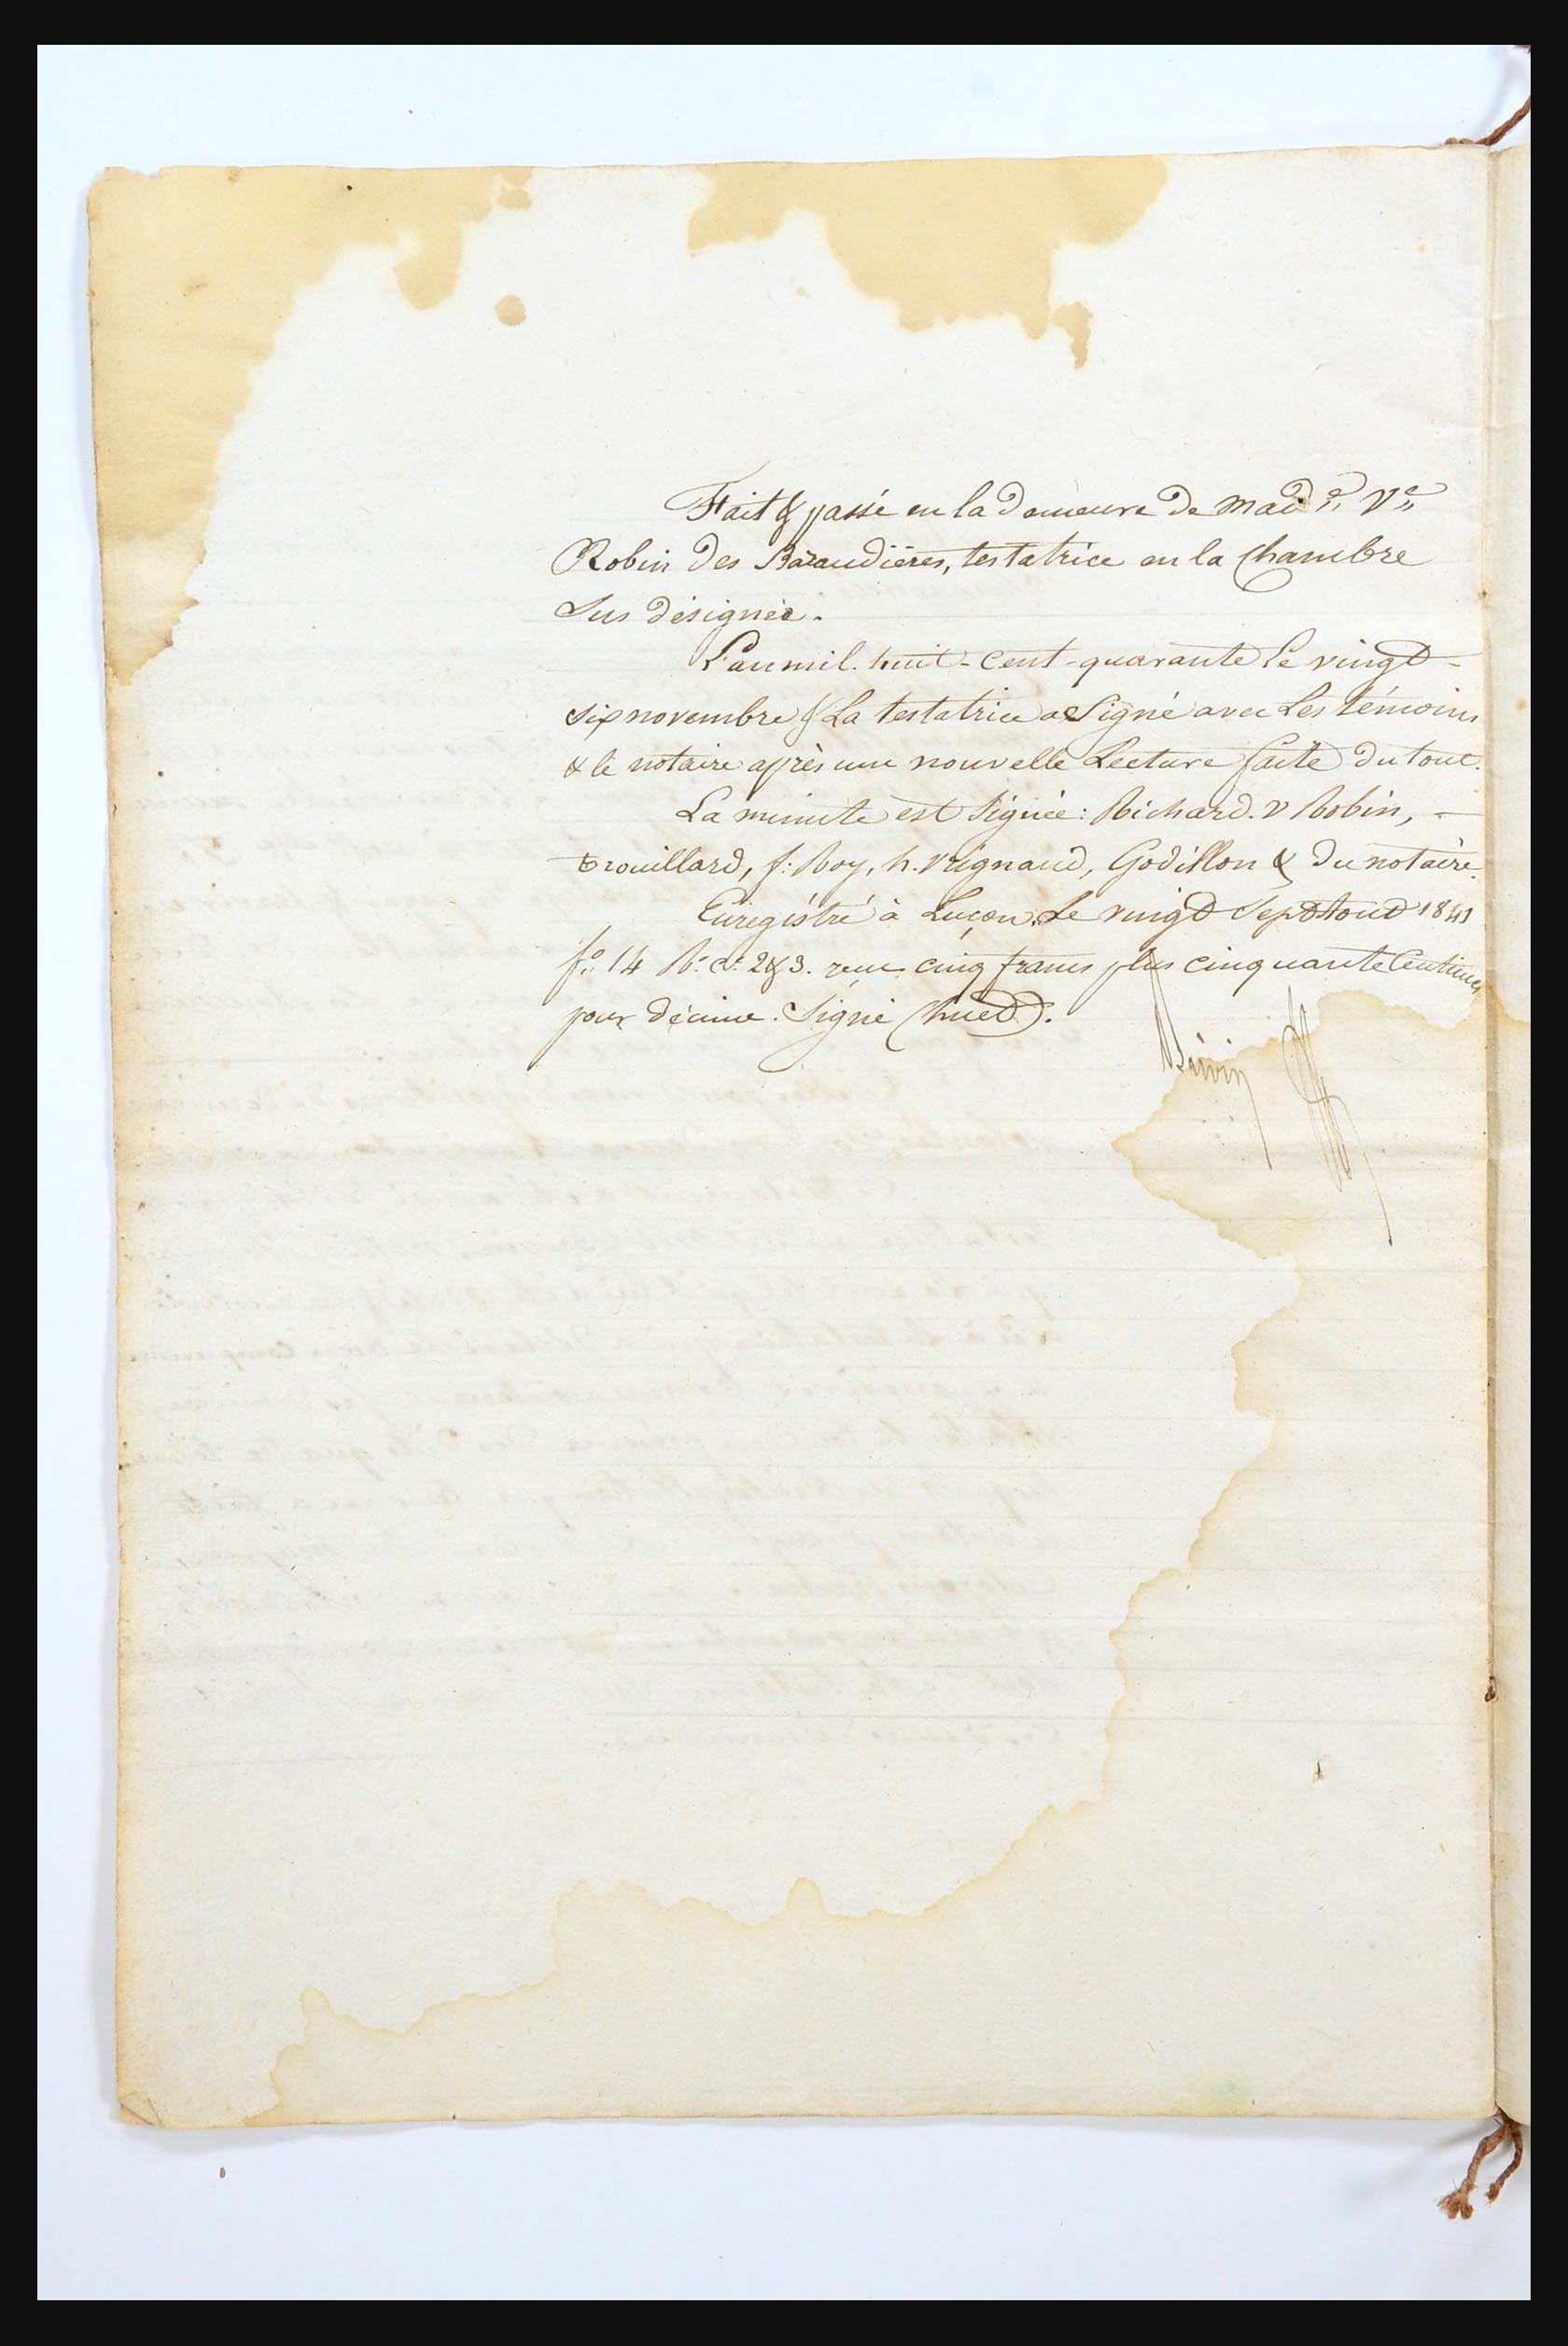 Fait & passé en la demeure de Mad.e V.e
Robin des Bazaudières, testatrice en la Chambre
Sus désignée.
L'an mil. huit-Cent-quarante le vingt-
six novembre & La testatrice a Signé avec Les témoins
& le notaire après une nouvelle Lecture faite du tout.
La minute est Signée: Richard. V Robin,
trouillard, f: Roy, h. Vrignaud, Godillon & du notaire.
Enregistré à Luçon, Le vingt Sept aout 1841
f.o 14 R.o C.es 2 & 3. reçu cinq francs plus cinquante Centimes
pour décime. Signé Chued.